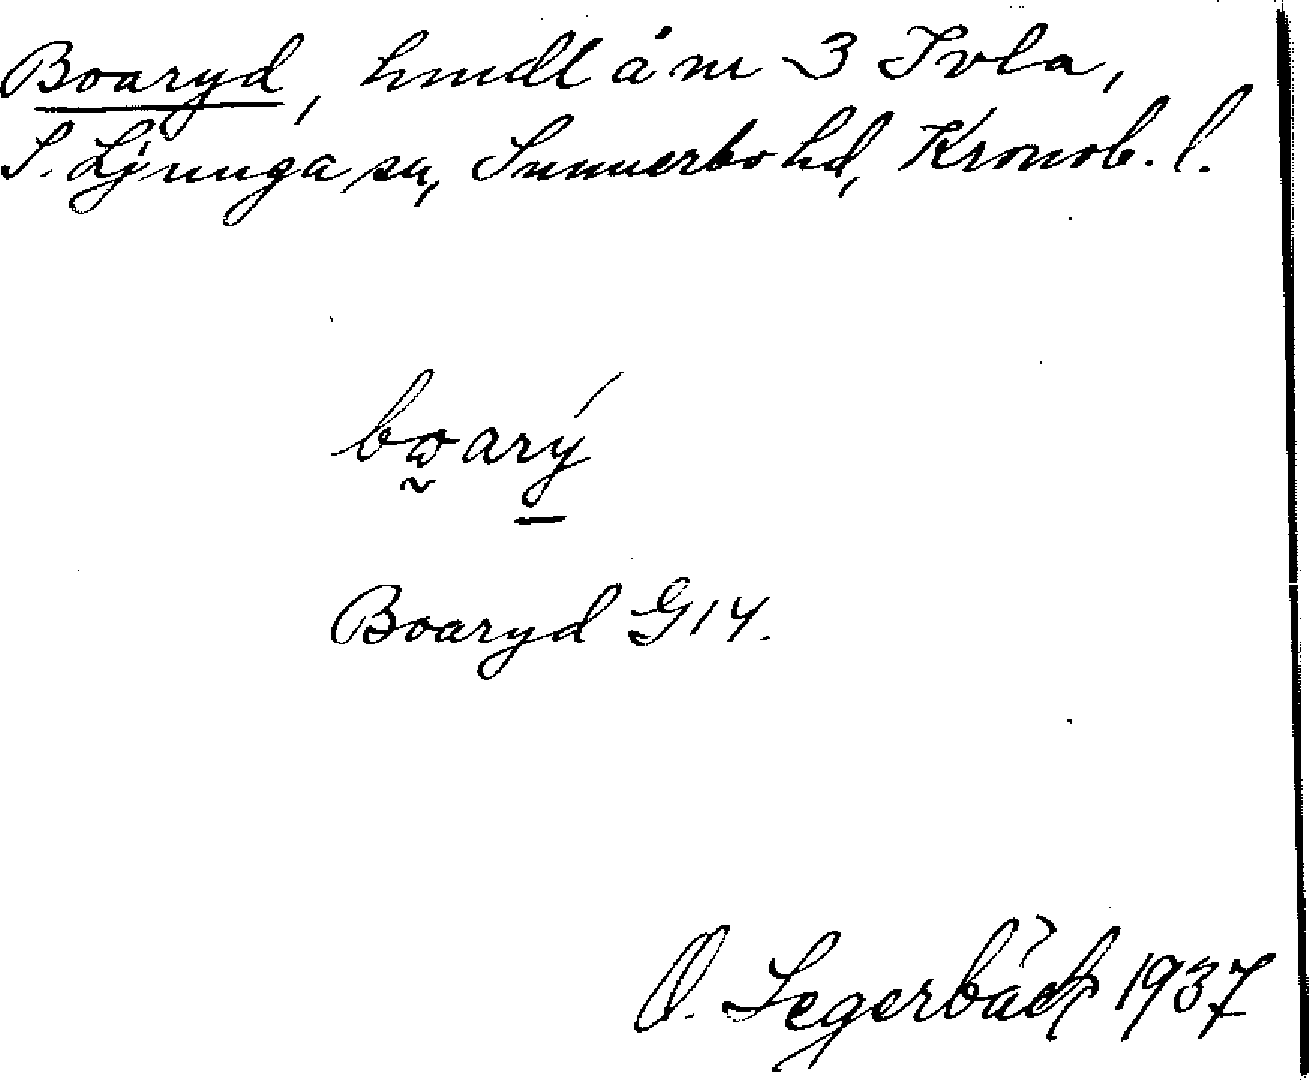 Boaryd, hmdl å nr 3 Ivla,
S. Ljunga sn, Sunnerbo hd, Kronob. l.
boarý
Boaryd G14.
O. Segerbäck 1937